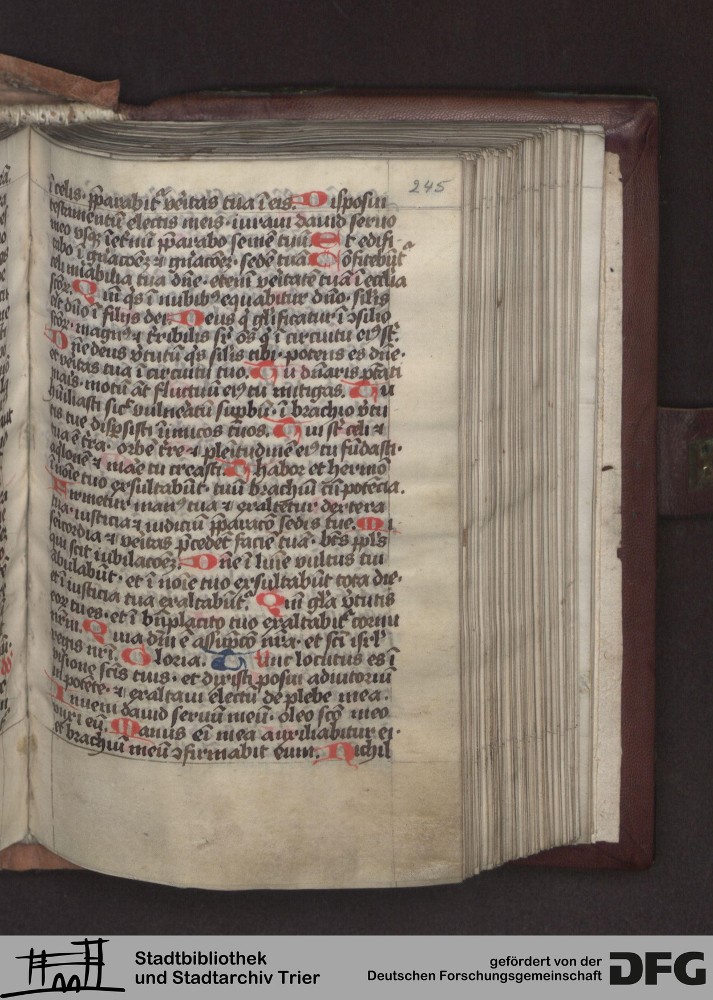 245
i celis · p̱parabit᷑ veritas tua i eis. Disposui
testamentū electis meis · iuravi david servo
meo vsq̨ i et̓nū p̱parabo semē tuū. Et edifi
cabo i gnacōeʒ ⁊ gnacōeʒ · sedē tuā. Cōfitebūt᷑
celi mirabilia tua dn̄e · eteni veritatē tuā i ecclīa
scōꝝ. Qm̄ q̇s i nubibꝰ equabitur dn̄o · silis
eit dn̄o i filijs dei. Deus q̇ glificatur i ↄsilio
scōꝝ · magnꝰ ⁊ tribilis sr̄ oēs q̇ i circuitu eiꝰ st̄.
Dn̄e deus v̓tutū q̇s silis tibi · potens es dn̄e ·
et veritas tua i circuitu tuo. Tu dn̄aris ptāti
maīs · motū at̄ fluctuū eiꝰ tu mitigas. Tu
hūiliasti sic̄ vulneratū supbū · i brachio v̓tu
tis tue dispsisti inimicos tuos. Tui st̄ celi ⁊
tua ē t̓ra · orbē t̓re ⁊ pleitudinē eiꝰ tu fūdasti ·
aq̇lonē ⁊ mare tu creasti. Thabor et hermō
i noīe tuo exsultabūt · tuū brachiū cū potēcia.
Firmetur manꝰ tua ⁊ exaltetur dextera
tua · iusticia ⁊ iudiciū p̱paracō sedis tue. Mi
sericordia ⁊ veritas p̱cedet̄ faciē tuā · bt̄s ppl̄s
qui scit iubilacōeʒ. Dn̄e i luīe vultus tui
abulabūt · et i noīe tuo exsultabūt tota die ·
et i iusticia tua exaltabūt᷑. Qm̄ glīa v̓tutis
eoꝝ tu es · et i bn̄placito tuo exaltabit᷑ cornu
nr̄m. Quia dn̄i ē assūpcō nr̄a · et scī isrl̄
regis nr̄i. Gloria. Tunc locutus es i
visione scīs tuis · et dixisti posui adiutoriū
in potēte · ⁊ exaltavi electū de plebe mea.
Inveni david servū meū · oleo scō meo
unxi eū. Manus ei mea auxiliabitur ei ·
et brachiū meū ↄfirmabit eum. Nichil
Stadtbibliothek
und Stadtarchiv Trier
gefördert von der
Deutschen Forschungsgemeinschaft
DFG